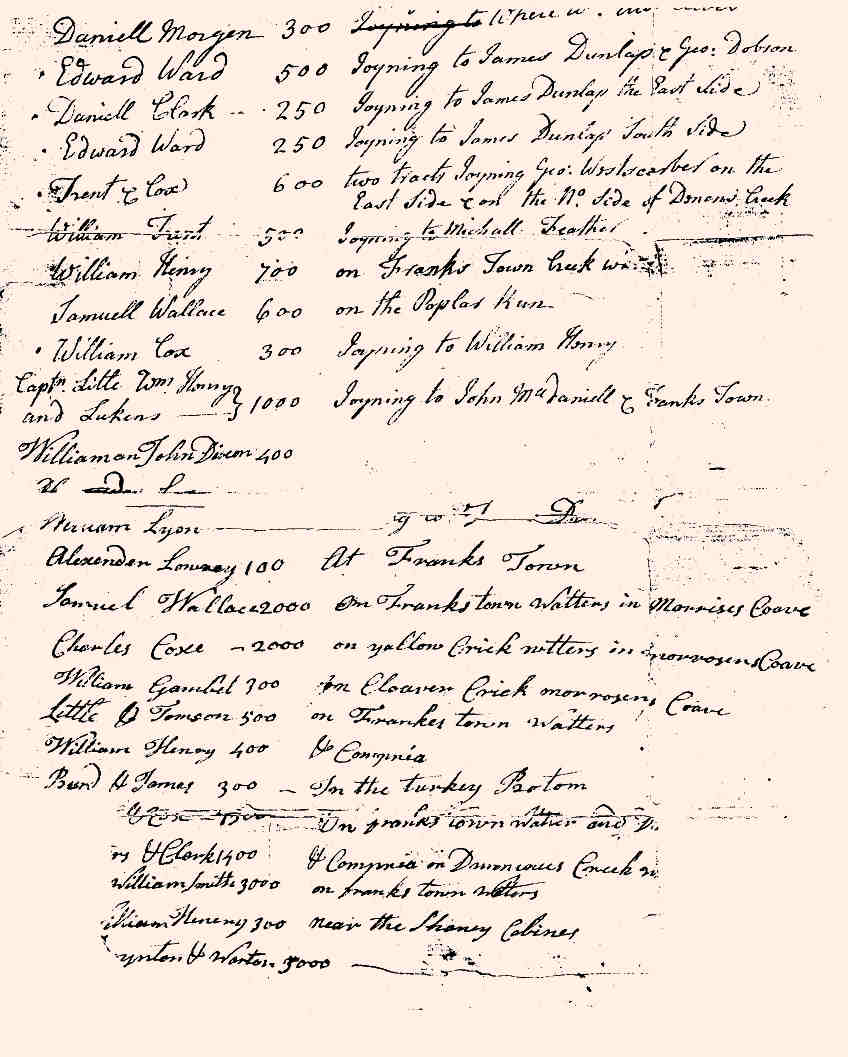 Daniell Morgen 300 Joyning to Where
Edward Ward 500 Joyning to James Dunlap & Geo: Dobson
Daniell Clark 250 Joyning to James Dunlap the East Side
Edward Ward 250 Joyning to James Dunlap South Side
Trent & Cox 600 two tracts Joyning Geo: on the
East Side & on the No. Side of Creek
William Trent 500 Joyning to Michall Feather
William Henry 700 on Franks Town Creek
Samuell Wallace 600 on the Poplar Run
William Cox 300 Joyning to William Henry
Captn. Little Wm. Henry
and Lukens 1000 Joyning to John McDaniell & Franks Town
William an John Dixon 400
William Lyon
Alexender Lowrey 100 At Franks Town
Samuel Wallace 2000 On Frankstown Watters in Morrises Coave
Charles Coxe 2000 on yallow Crick wtters in morrosens Coave
William Gambel 300 in Cloaver Crick morrosens Coave
Little & Tomson 500 on Frankes town Watters
William Henry 400 & Compnia
Burd & James 300 In the turkey Botom
On franks town Watter and
& Clerk 1400 & Compnia on Creek
William Smith 3000 on franks town wtters
Henery 300 near the Shaney Cabines
& Worton 3000